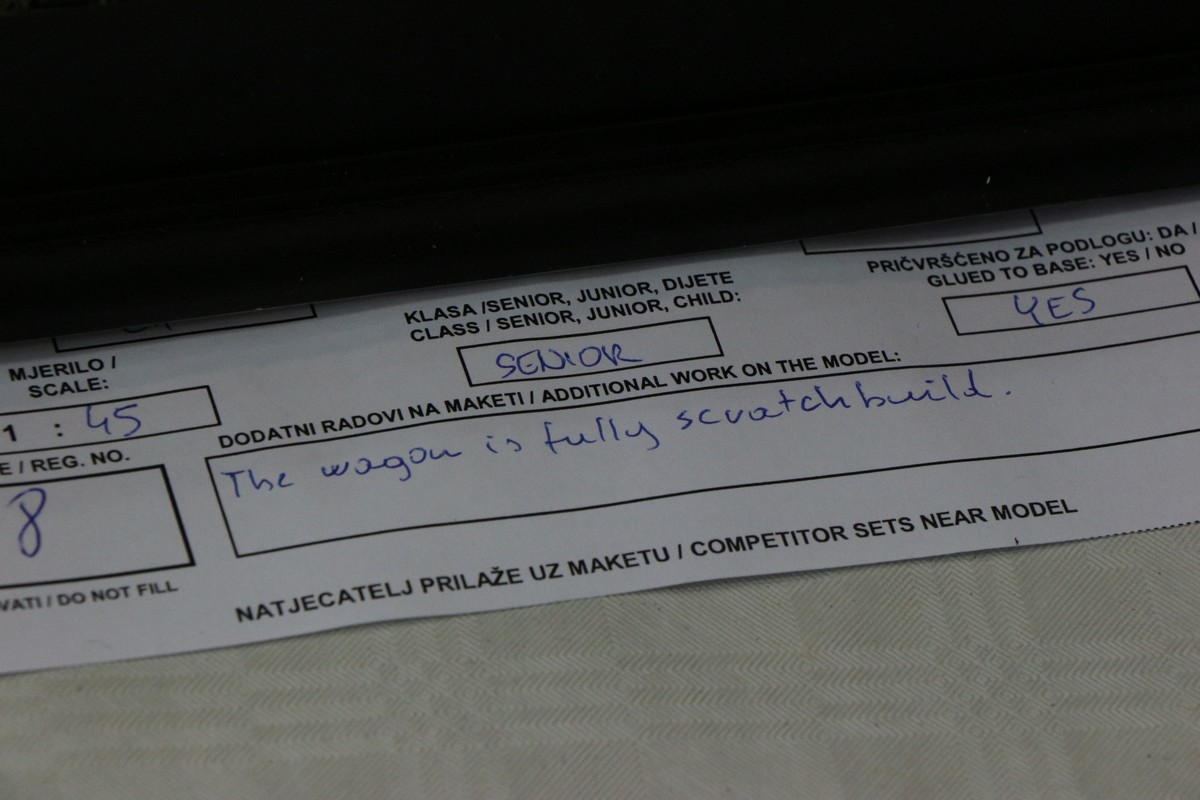 KLASA /SENIOR, JUNIOR, DIJETE
CLASS / SENIOR, JUNIOR, CHILD:
SENIOR
PRIČVRŠĆENO ZA PODLOGU: DA /
GLUED TO BASE: YES / NO
YES
MJERILO /
SCALE:
1 : 45
DODATNI RADOVI NA MAKETI / ADDITIONAL WORK ON THE MODEL:
The wagon is fully scratchbuild.
E / REG. NO.
8
VATI / DO NOT FILL
NATJECATELJ PRILAŽE UZ MAKETU / COMPETITOR SETS NEAR MODEL